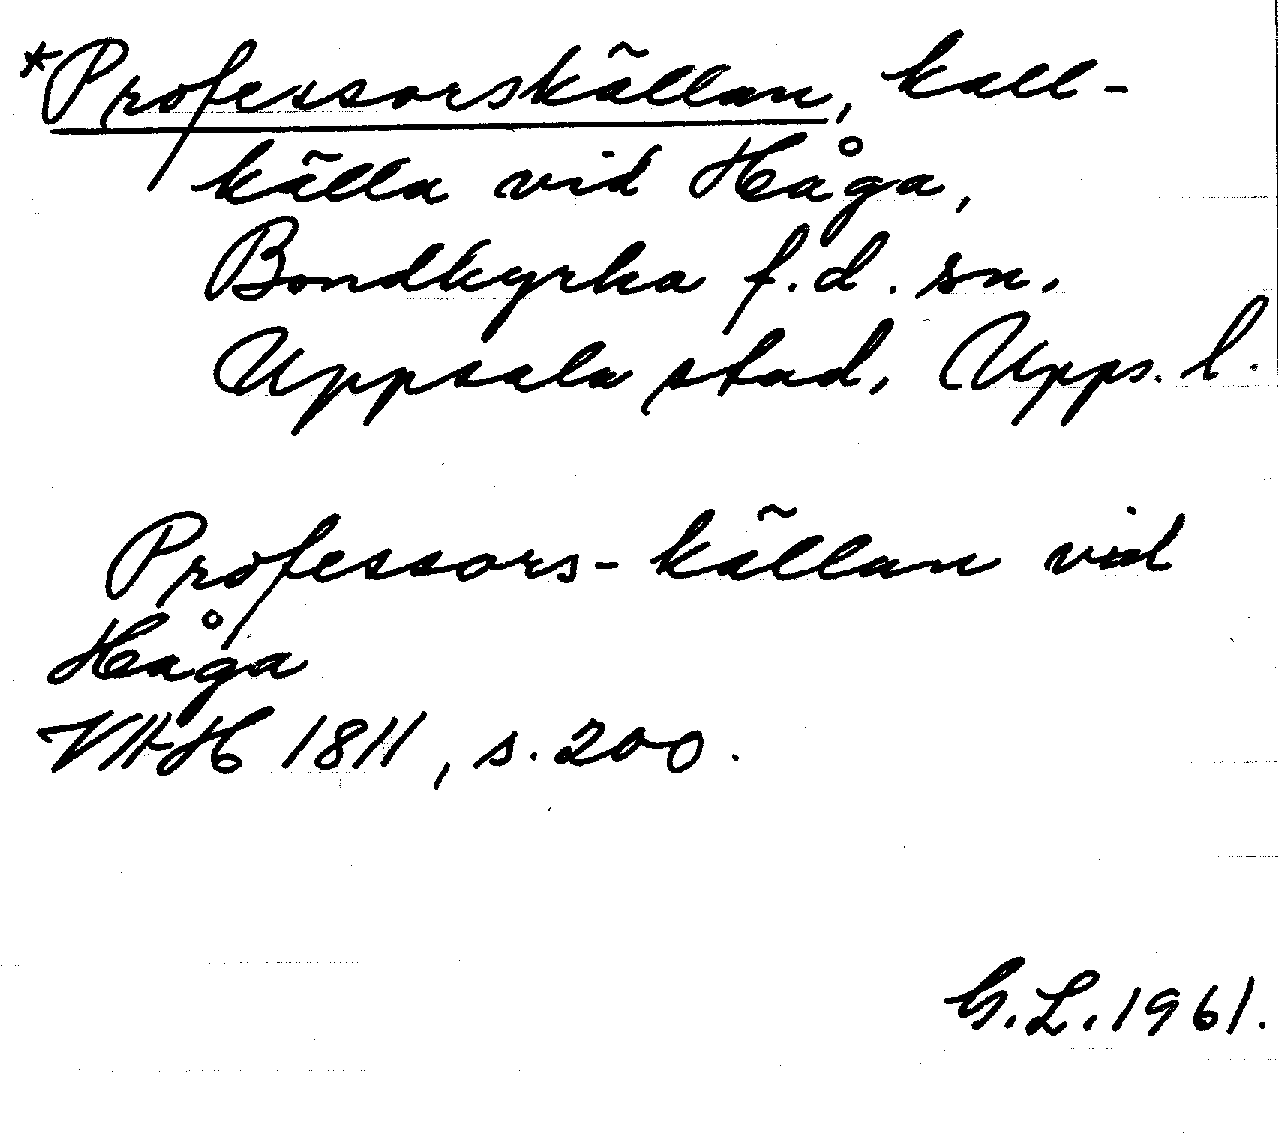 *Professorskällan, kall-
källa vid Håga,
Bondkyrka f.d. sn.
Uppsala stad, Upps. l.
Professors-källan vid
Håga
VHH 1811, s. 200.
G.L. 1961.